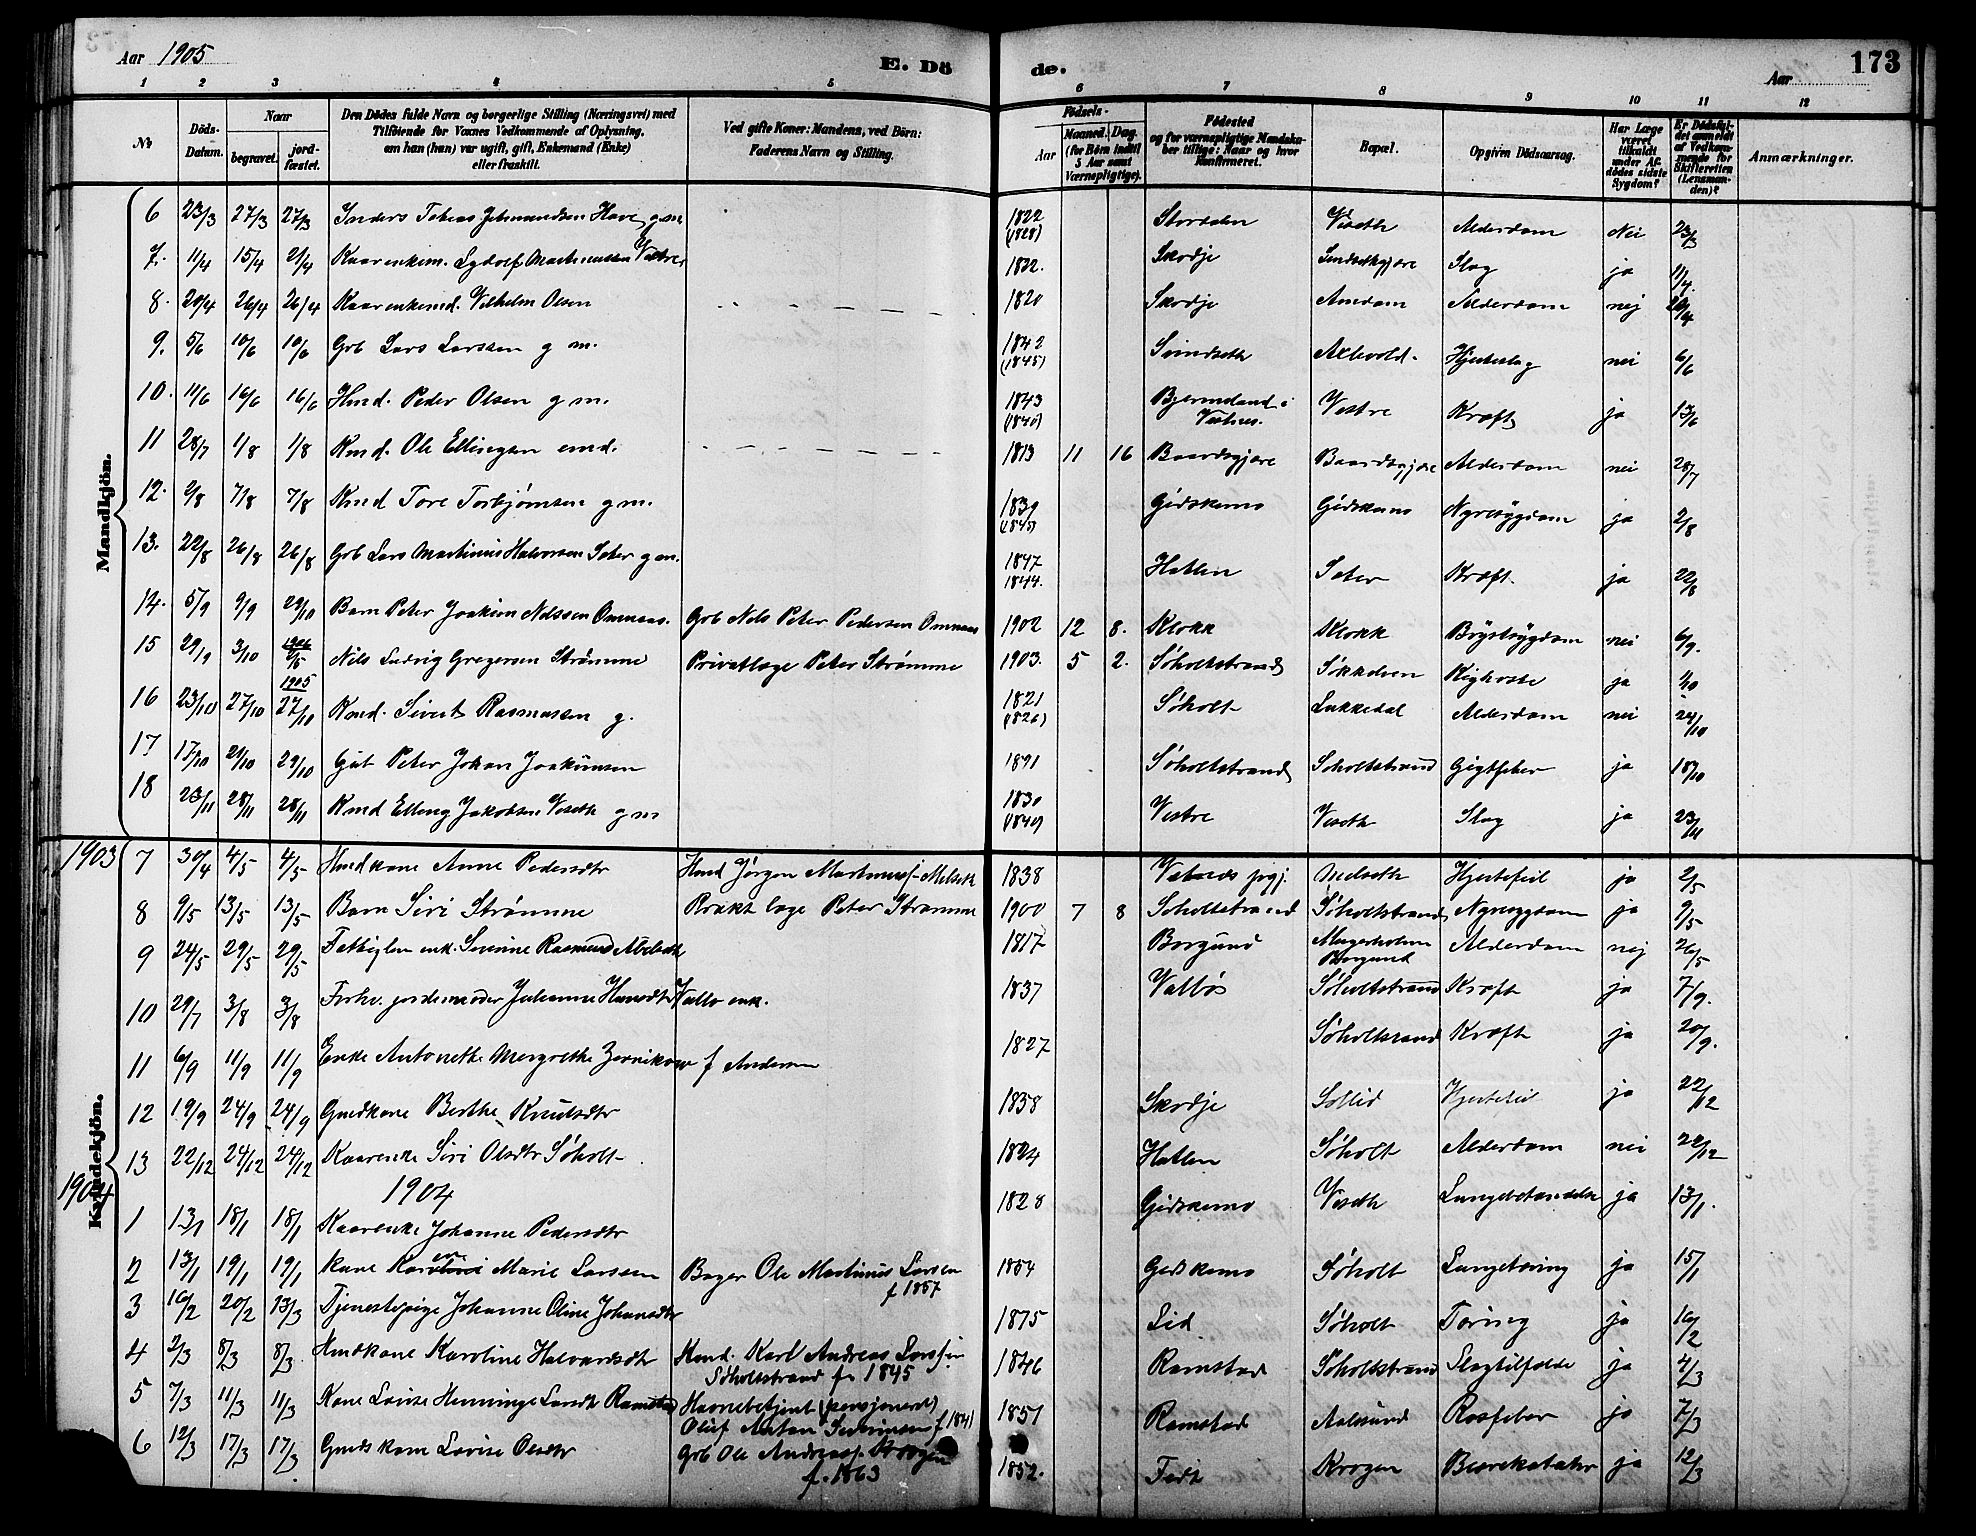 Aar 1905
E. Dö
de.
Aar
173
1 2 3 4 5 6 7 8 9 10 11 12
№
Döds-Datum.
Naar
begravet.
jord-fæstet.
Den Dödes fulde Navn og borgerlige Stilling (Næringsvei) med
Tilföiende for Voxnes Vedkommende af Oplysning,
om han (hun) var ugift, gift, Enkemand (Enke)
eller fraskilt.
Ved gifte Koner: Mandens, ved Börn:
Faderens Navn og Stilling.
Födsels-
Aar
Maaned. Dag.
(for Börn indtil
5 Aar samt
Værnepligtige).
Födested
og for værnepligtige Mandskaber tillige: Naar og hvor
konfirmeret.
Bopæl.
Opgiven Dödsaarsag.
Har Læge været tilkaldt under Afdödes sidste Sygdom?
Er Dödsfaldet anmeldt af Vedkommende for Skifteretten (Lensmanden)?
Anmærkninger.
Mandkjön.
6 23/3 27/3 27/3 Tobias g m. 1822 (1828) Viseth Alderdom Nei 23/3
7. 11/4 15/4 21/4 Kaarenkem. Martinussen Vestre 1832. Skodje Slag ja 11/4.
8. 20/4 26/4 26/4 Kaarenkemd. Vilhelm Olsen 1820 Skodje Amdam Alderdom nej 20/4
9. 5/6 10/6 10/6 Grb Lars Larssen g m. 1842 (1845) Svindseth Hjerteslag nei 6/6
10. 11/6 16/6 16/6 Hmd. Peder Olsen g m. 1843 (1840) i Vestnes. Vestre Kræft ja 13/6
11 28/7 1/8 1/8 Kmd. Ole Ellingsen emd. 1813 11 16 Baardsgjære Baardsgjære Alderdom nei 28/7
12. 2/8 7/8 7/8 Kmd Tore Torbjørnsen g m. 1839 (1843) Gidskemo Gidskemo Nyresygdom ja 2/8
13. 22/8 26/8 26/8 Grb Lars Martinus Halvorsen Sæter g m. 1847 1844. Hatlen Sæter Kræft. ja 22/8
14. 5/9 9/9 29/10 Barn Peter Joakim Nilssen Omnaas. Grb Nils Peter Pedersen Omnaas 1902 12 8. Klokk Klokk Brystsygdom nei 6/9.
15 29/9 3/10 1906 Nils Ludvig Gregersen Strømme Privatlæge Peter Strømme 1903. 5 2. Søholtstrand Kighoste ja 1/10
16 23/10 27/10 1905 27/10 Kmd. Sivert Rasmussen g. 1821 (1826) Søholt Lukkedal Alderdom nei 24/10
17 17/10 21/10 29/10 Gut Peter Johan Joakimsen 1891 Søholtstrand Søholtstrand Gigtfeber ja 18/10
18 23/11 28/11 28/11 Kmd Elling Jakobsen Viseth g m 1830 (1840) Vestre Viseth Slag ja 23/11
Kvindekjön.
1903 7 30/4 4/5 4/5 Hmdkone Anne Pedersdtr Hmd Jørgen Martinus 1838 Vatnes pgj. Hjertefeil ja 2/5
8 9/5 13/5 13/5 Barn Siri Strømme Prakt læge Peter Strømme 1900 7 8 Søholtstrand Søholtstrand Nyresygdom ja 9/5
9 24/5 29/5 29/5 Fattiglem enk. Severine 1817 Borgund Magerholm Borgund Alderdom nej 26/5
10 29/7 3/8 3/8 Forhv. jordemoder Julianne Hansdtr enk. 1837 Søholtstrand Kræft ja 7/9.
11 6/9 11/9 11/9 Enke Antonette Margrethe f Andersen 1827 Søholtstrand Kræft ja 20/9.
12 19/9 24/9 24/9 Gmdkone Berthe Knutsdtr 1838 Skodje Sollid Hjertefeil ja 22/12
13 22/12 24/12 24/12 Kaarenke Siri Olsdtr Søholt 1824 Hatlen Søholt Alderdom nei 22/12
1904 1904
1 13/1 18/1 18/1 Kaarenke Johanne Pedersdtr 1828 Gidskemo Viseth Lungebetændelse ja 13/1.
2 13/1 19/1 19/1 Kone Marie Larssen Bager Ole Martinus Larsen f 1857 1854 Gidskemo Søholt Lungetæring ja 15/1
3 16/2 20/2 13/3 Tjenestepige Johanne Oline Johansdtr 1875 Lid Søholt Tæring ja 16/2
4 2/3 8/3 8/3 Hmdkone Karoline Halvardsdtr Hmd. Karl Andreas Larssen Søholtstrand f. 1845 1846 Ramstad Søholtstrand Slagtilfælde ja 4/3
5 7/3 11/3 11/3 Kone Lovise Henninge Larsdtr Ramstad Havnebetjent (pensjoneret) Oluf Anton f 1841 1851 Ramstad Aalesund Rosfeber ja 7/3
6 12/3 17/3 17/3 Gmdskone Lovise Olsdtr Grb Ole Andreas Krogen f. 1863 1852. Fedt Krogen ja 12/3